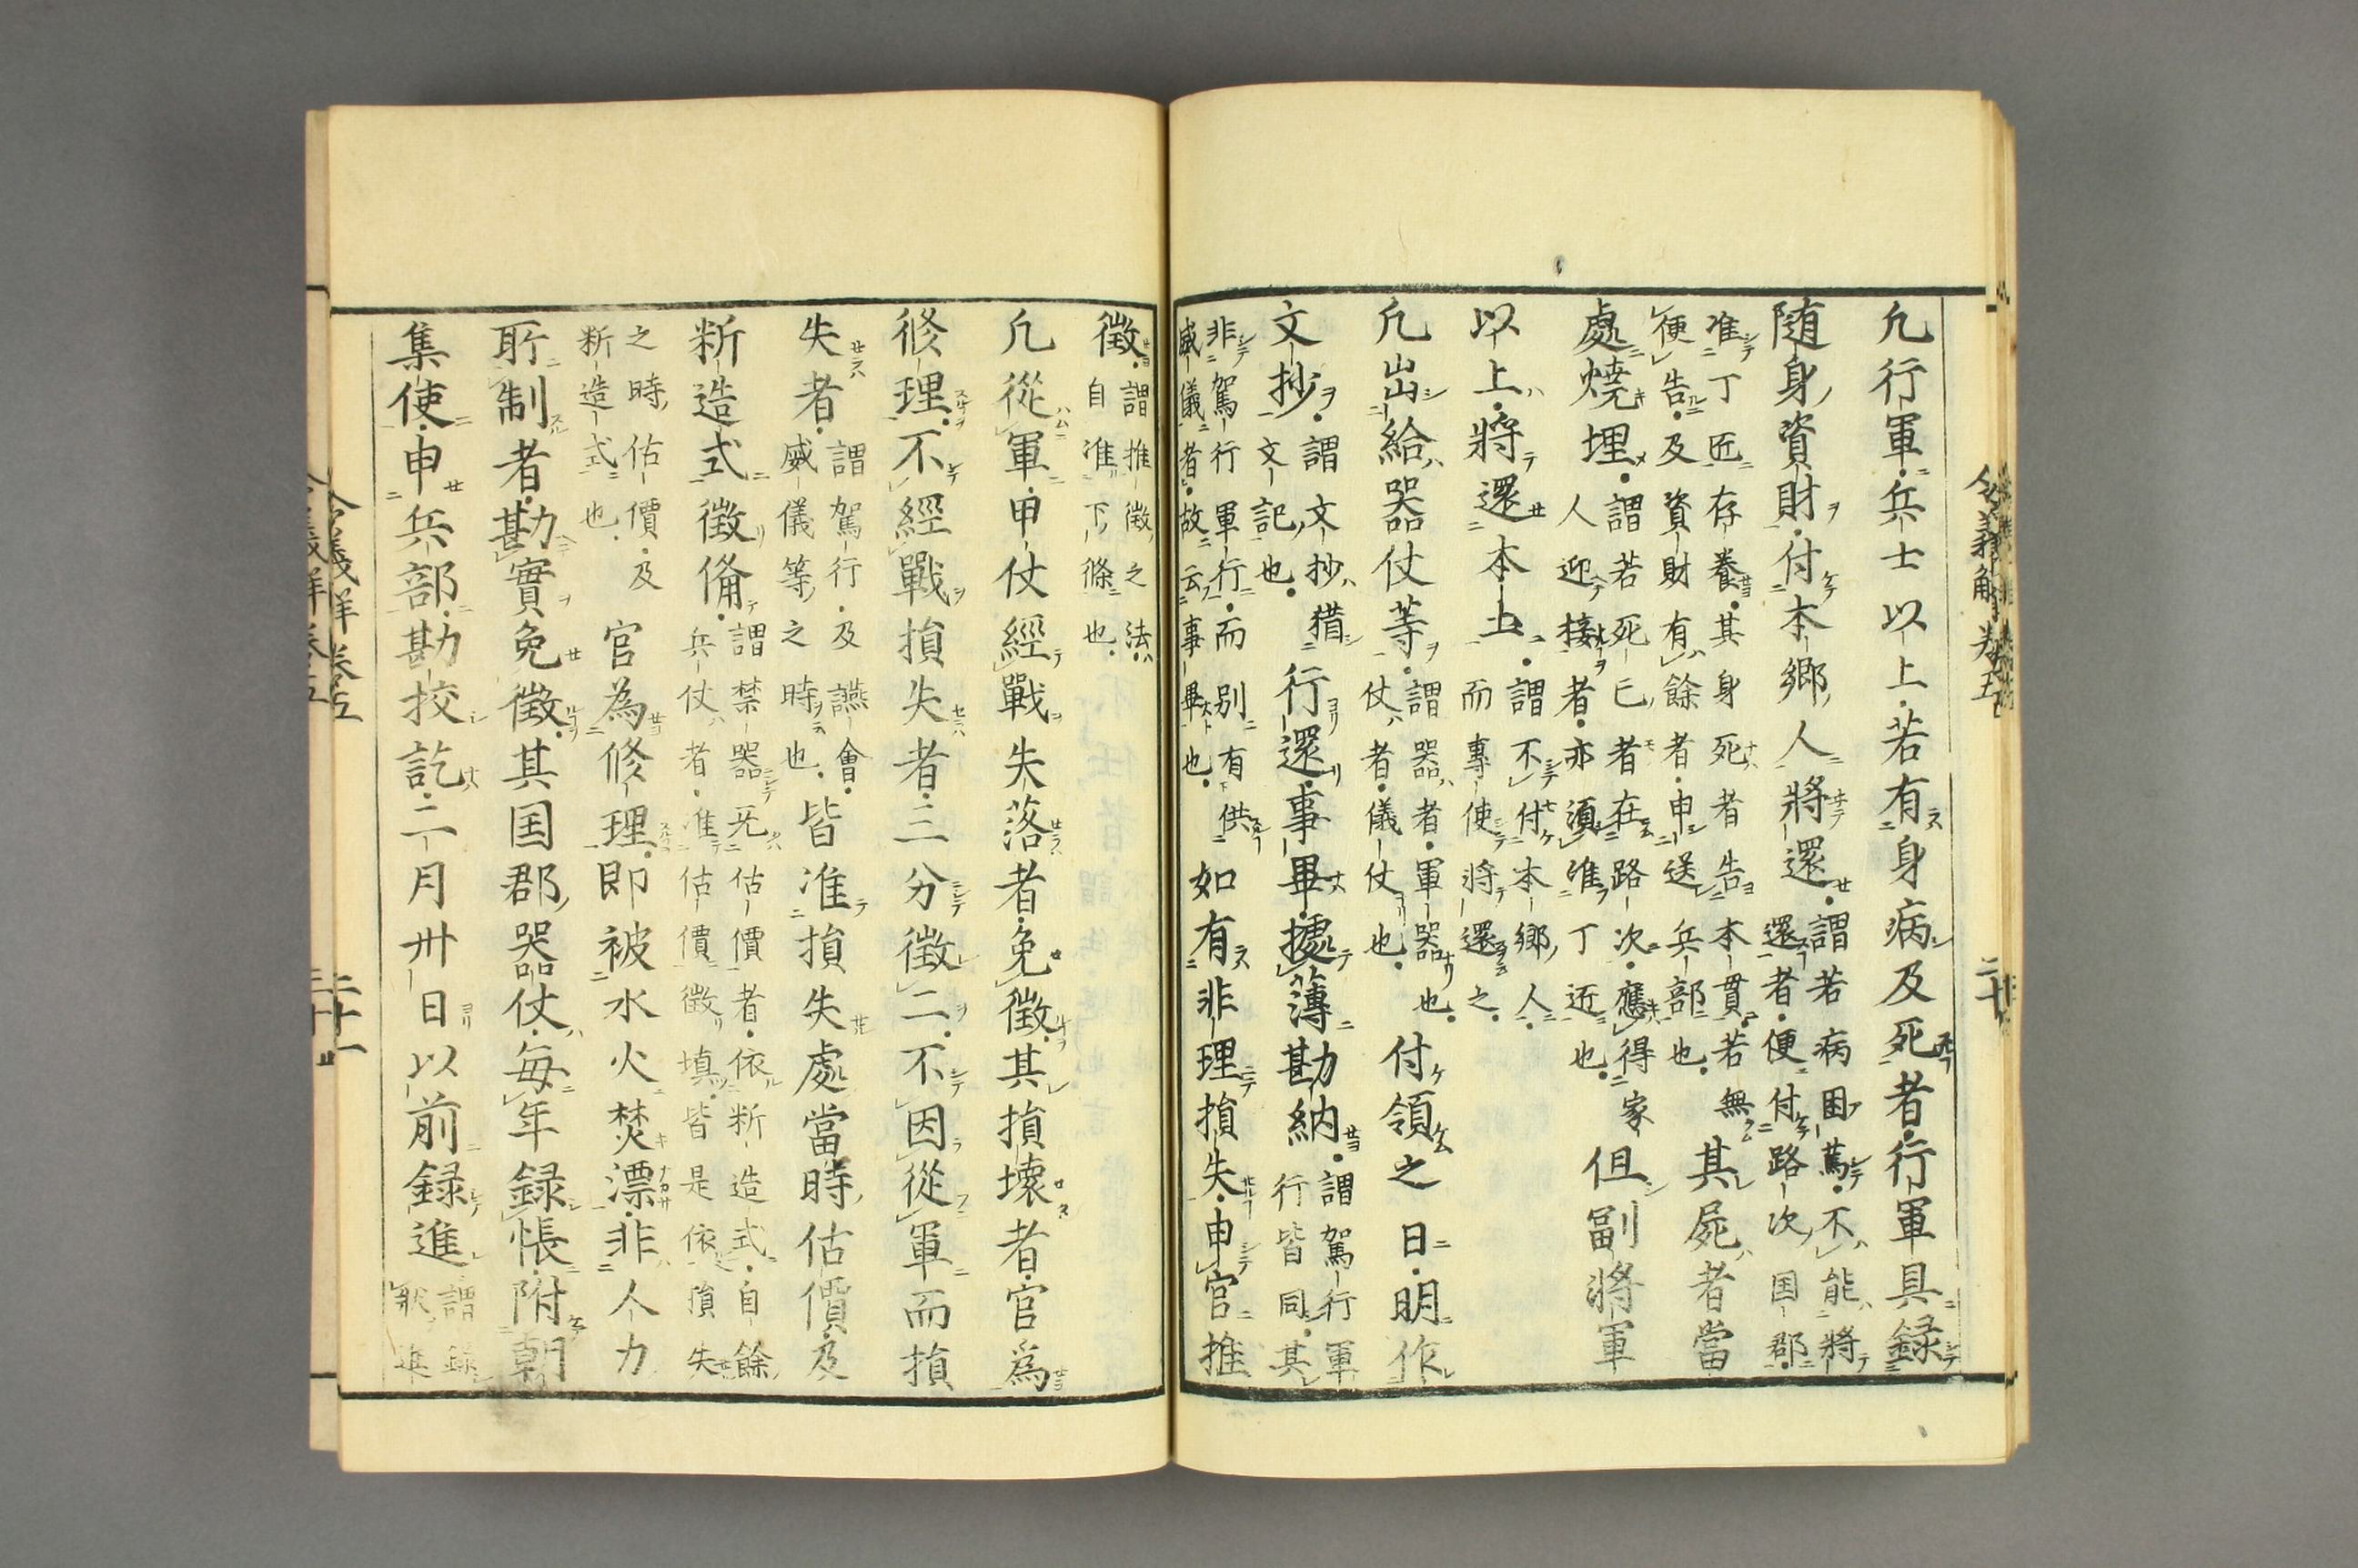 凢行軍兵士以上若有身病及死者行軍具録
随身資財付本郷人將還謂若病困篤不能將還者便付路次国郡
准丁匠存養其身死者告本貫若無便告及資財有餘者申送兵部也其屍者當
處焼埋謂若死已者在路次應得家人迎接者亦須准丁近也但副將軍
以上將還本土謂不付本郷人而專使將還之
凢出給器仗等謂器者軍器也仗者儀仗也付領之日明作
文抄謂文抄猶文記也行還事畢據薄勘納謂駕行軍行皆同其
非駕行軍行而別有供威儀者故云事畢也如有非理損失申官推
徴謂推徴之法自准下條也
凢從軍甲仗經戰失落者免徴其損壊者官為
修理不經戰損失者三分徴二不因從軍而損
失者謂駕行及讌會威儀等之時也皆准損失處當時估價及
料造式徴俻謂禁器无估價者依料造式自餘兵仗者准估價徴填皆是依損失
之時估價及料造式也官為修理即被水火焚漂非人力
所制者勘實免徴其国郡器仗毎年録帳附朝
集使申兵部勘挍訖二月卅日以前録進
令義解卷五
二十
令義解卷五
二十一